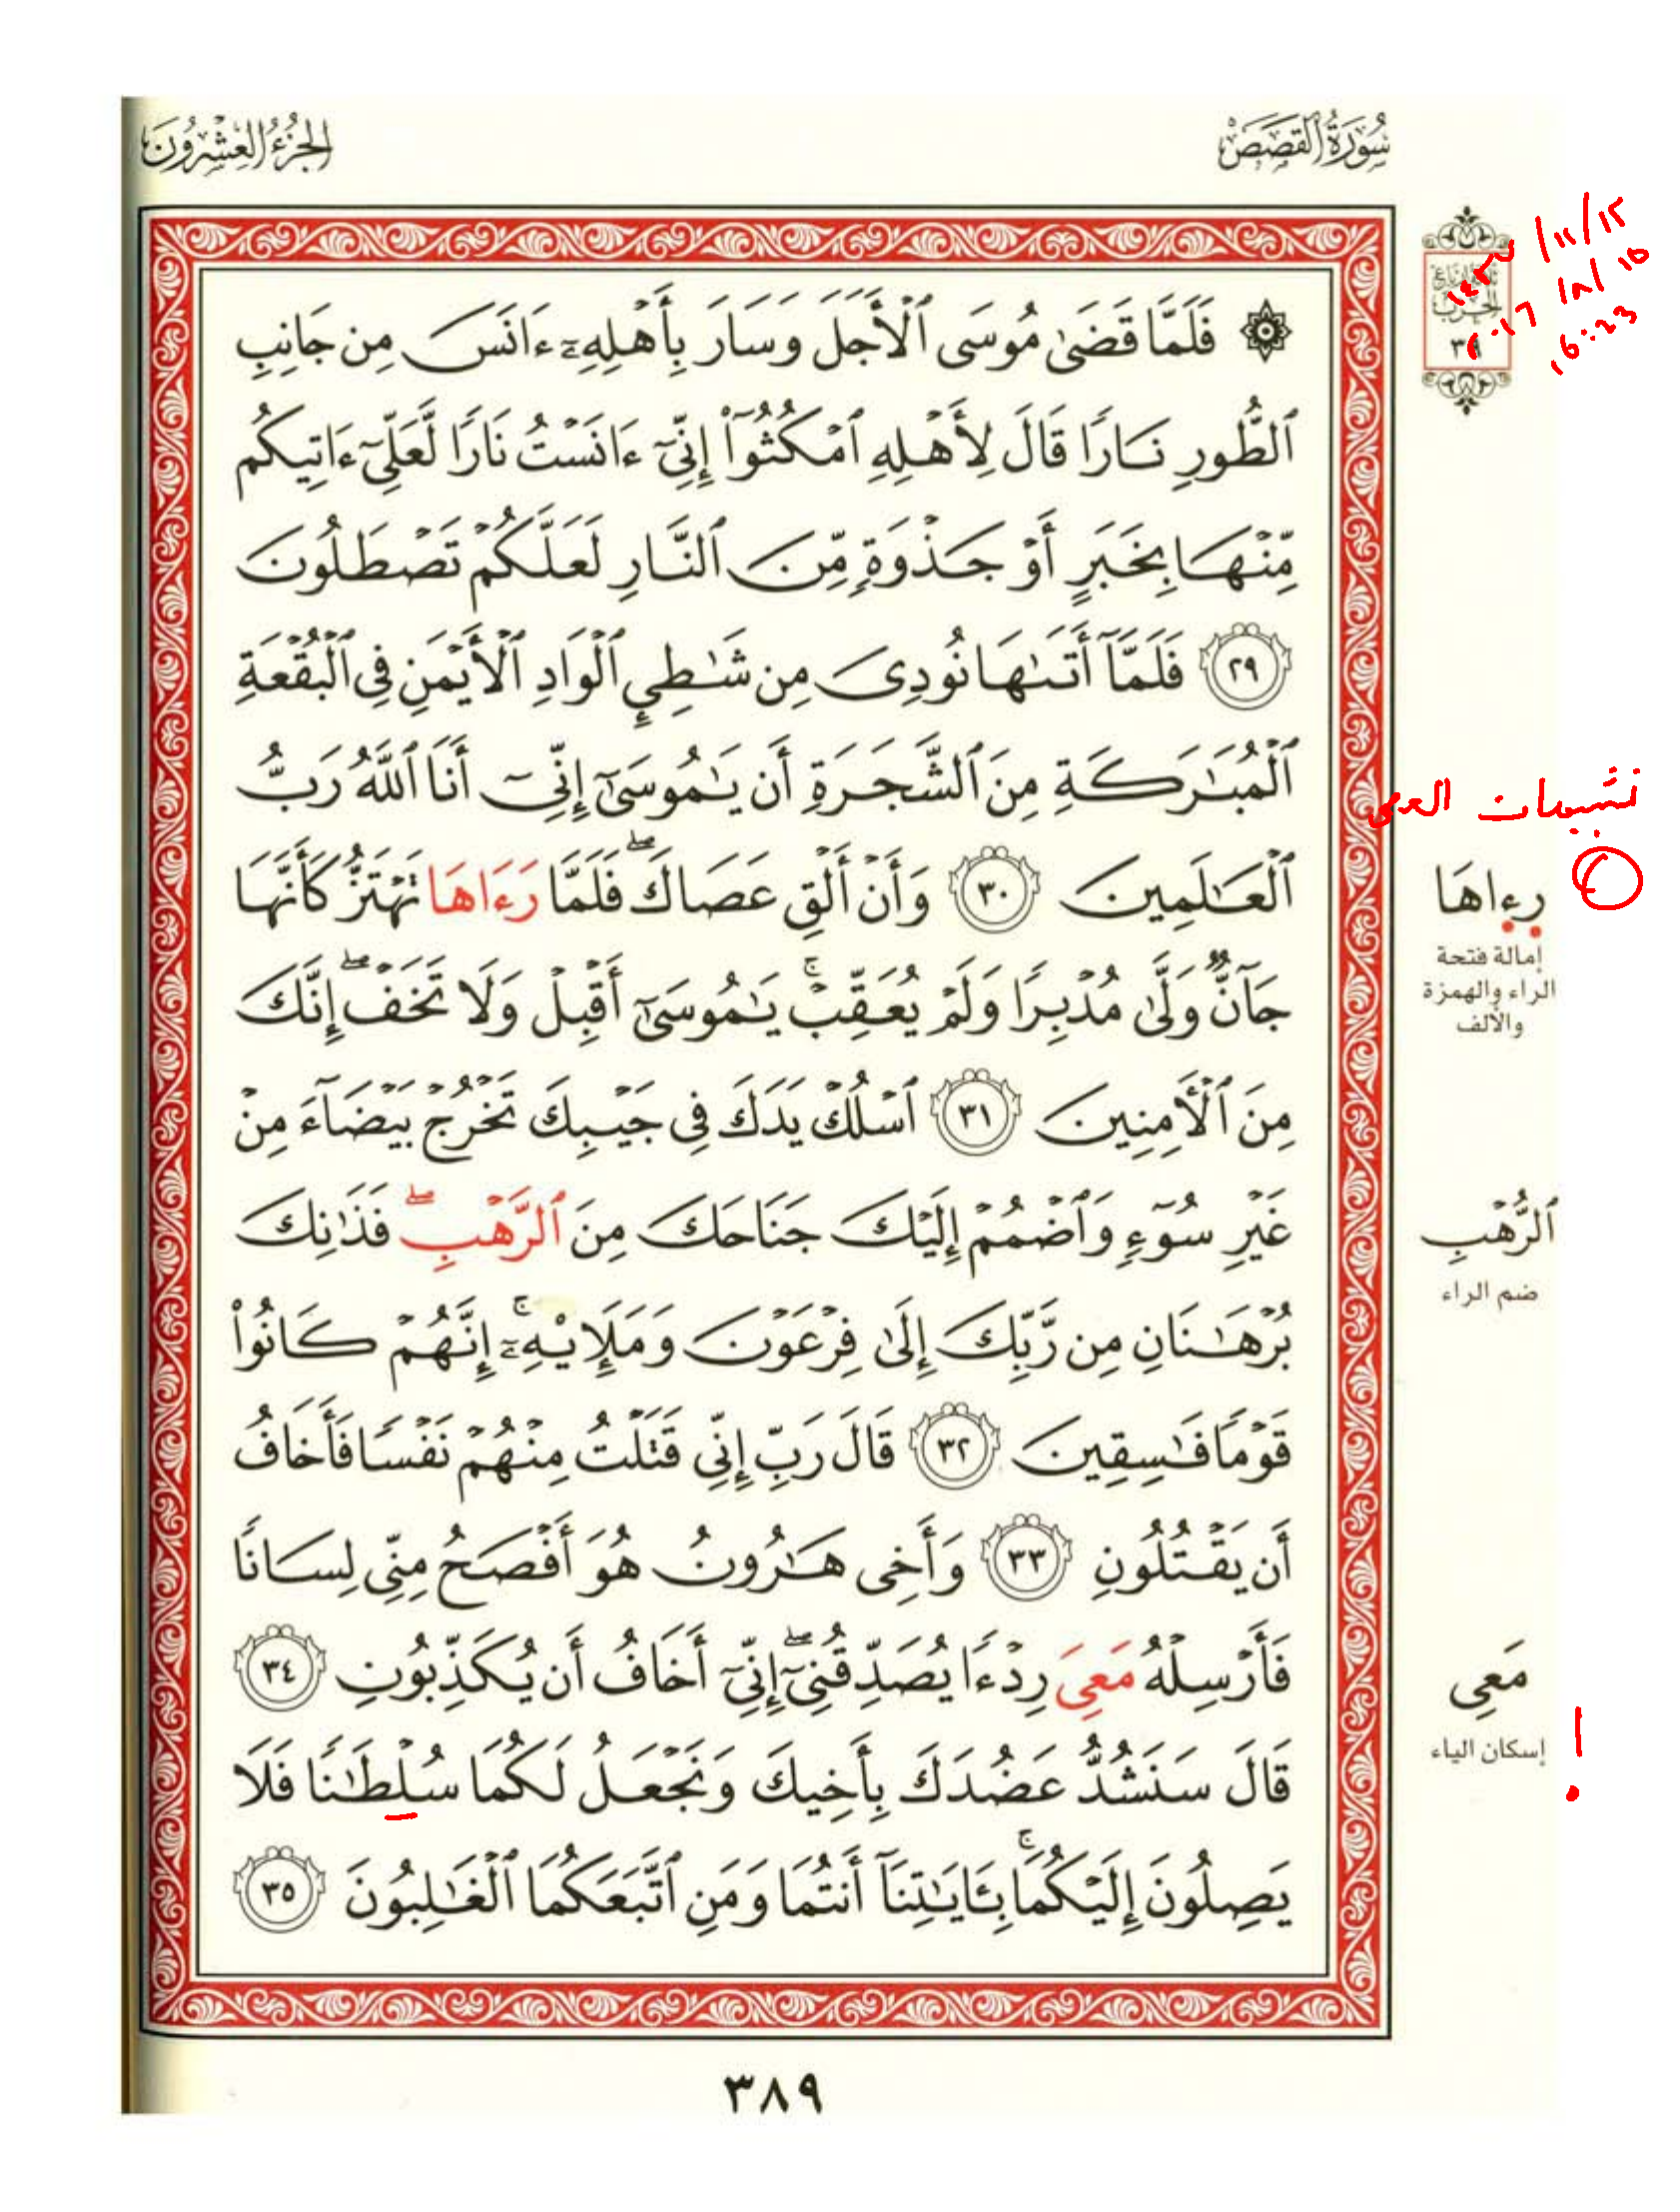 سُورَةُ ٱلْقَصَصِ
ٱلْجُزْءُ ٱلْعِشْرُونَ
ثَلَاثَةُ أَرْبَاعِ
ٱلْحِزْبِ
٣٩
۞ فَلَمَّا قَضَىٰ مُوسَى ٱلْأَجَلَ وَسَارَ بِأَهْلِهِۦٓ ءَانَسَ مِن جَانِبِ
ٱلطُّورِ نَارًا قَالَ لِأَهْلِهِ ٱمْكُثُوٓا۟ إِنِّىٓ ءَانَسْتُ نَارًا لَّعَلِّىٓ ءَاتِيكُم
مِّنْهَا بِخَبَرٍ أَوْ جَذْوَةٍ مِّنَ ٱلنَّارِ لَعَلَّكُمْ تَصْطَلُونَ
٢٩ فَلَمَّآ أَتَىٰهَا نُودِىَ مِن شَٰطِئِ ٱلْوَادِ ٱلْأَيْمَنِ فِى ٱلْبُقْعَةِ
ٱلْمُبَٰرَكَةِ مِنَ ٱلشَّجَرَةِ أَن يَٰمُوسَىٰٓ إِنِّىٓ أَنَا ٱللَّهُ رَبُّ
ٱلْعَٰلَمِينَ ٣٠ وَأَنْ أَلْقِ عَصَاكَۖ فَلَمَّا رَءَاهَا تَهْتَزُّ كَأَنَّهَا
جَآنٌّ وَلَّىٰ مُدْبِرًا وَلَمْ يُعَقِّبْۚ يَٰمُوسَىٰٓ أَقْبِلْ وَلَا تَخَفْۖ إِنَّكَ
مِنَ ٱلْأَمِنِينَ ٣١ ٱسْلُكْ يَدَكَ فِى جَيْبِكَ تَخْرُجْ بَيْضَآءَ مِنْ
غَيْرِ سُوٓءٍ وَٱضْمُمْ إِلَيْكَ جَنَاحَكَ مِنَ ٱلرَّهْبِۖ فَذَٰنِكَ
بُرْهَٰنَانِ مِن رَّبِّكَ إِلَىٰ فِرْعَوْنَ وَمَلَإِيْهِۦٓۚ إِنَّهُمْ كَانُوا۟
قَوْمًا فَٰسِقِينَ ٣٢ قَالَ رَبِّ إِنِّى قَتَلْتُ مِنْهُمْ نَفْسًا فَأَخَافُ
أَن يَقْتُلُونِ ٣٣ وَأَخِى هَٰرُونُ هُوَ أَفْصَحُ مِنِّى لِسَانًا
فَأَرْسِلْهُ مَعِىَ رِدْءًا يُصَدِّقُنِىٓۖ إِنِّىٓ أَخَافُ أَن يُكَذِّبُونِ ٣٤
قَالَ سَنَشُدُّ عَضُدَكَ بِأَخِيكَ وَنَجْعَلُ لَكُمَا سُلْطَٰنًا فَلَا
يَصِلُونَ إِلَيْكُمَاۚ بِـَٔايَٰتِنَآ أَنتُمَا وَمَنِ ٱتَّبَعَكُمَا ٱلْغَٰلِبُونَ ٣٥
رِءَاهَا
إمالة فتحة
الراء والهمزة
والألف
ٱلرُّهْبِ
ضم الراء
مَعِى
إسكان الياء
!
٣٨٩